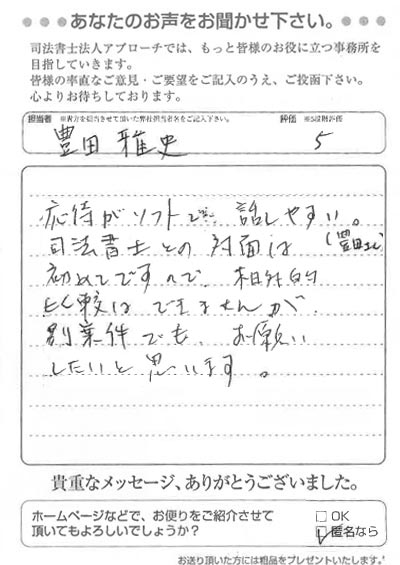 あなたのお声をお聞かせ下さい。
司法書士法人アプローチでは、もっと皆様のお役に立つ事務所を
目指していきます。
皆様の率直なご意見・ご要望をご記入のうえ、ご投函下さい。
心よりお待ちしております。
担当者 ※貴方を担当させて頂いた弊社担当者名をご記入下さい。 評価 ※5段階評価
豊田 雅史 5
応待がソフトで、話しやすい。
司法書士との対面は(豊田さん)
初めてですので、相対的
比較はできませんが、
別案件でも、お願い
したいと思います。
貴重なメッセージ、ありがとうございました。
ホームページなどで、お便りをご紹介させて
頂いてもよろしいでしょうか?
□ OK
☑ 匿名なら
お送り頂いた方には粗品をプレゼントいたします。